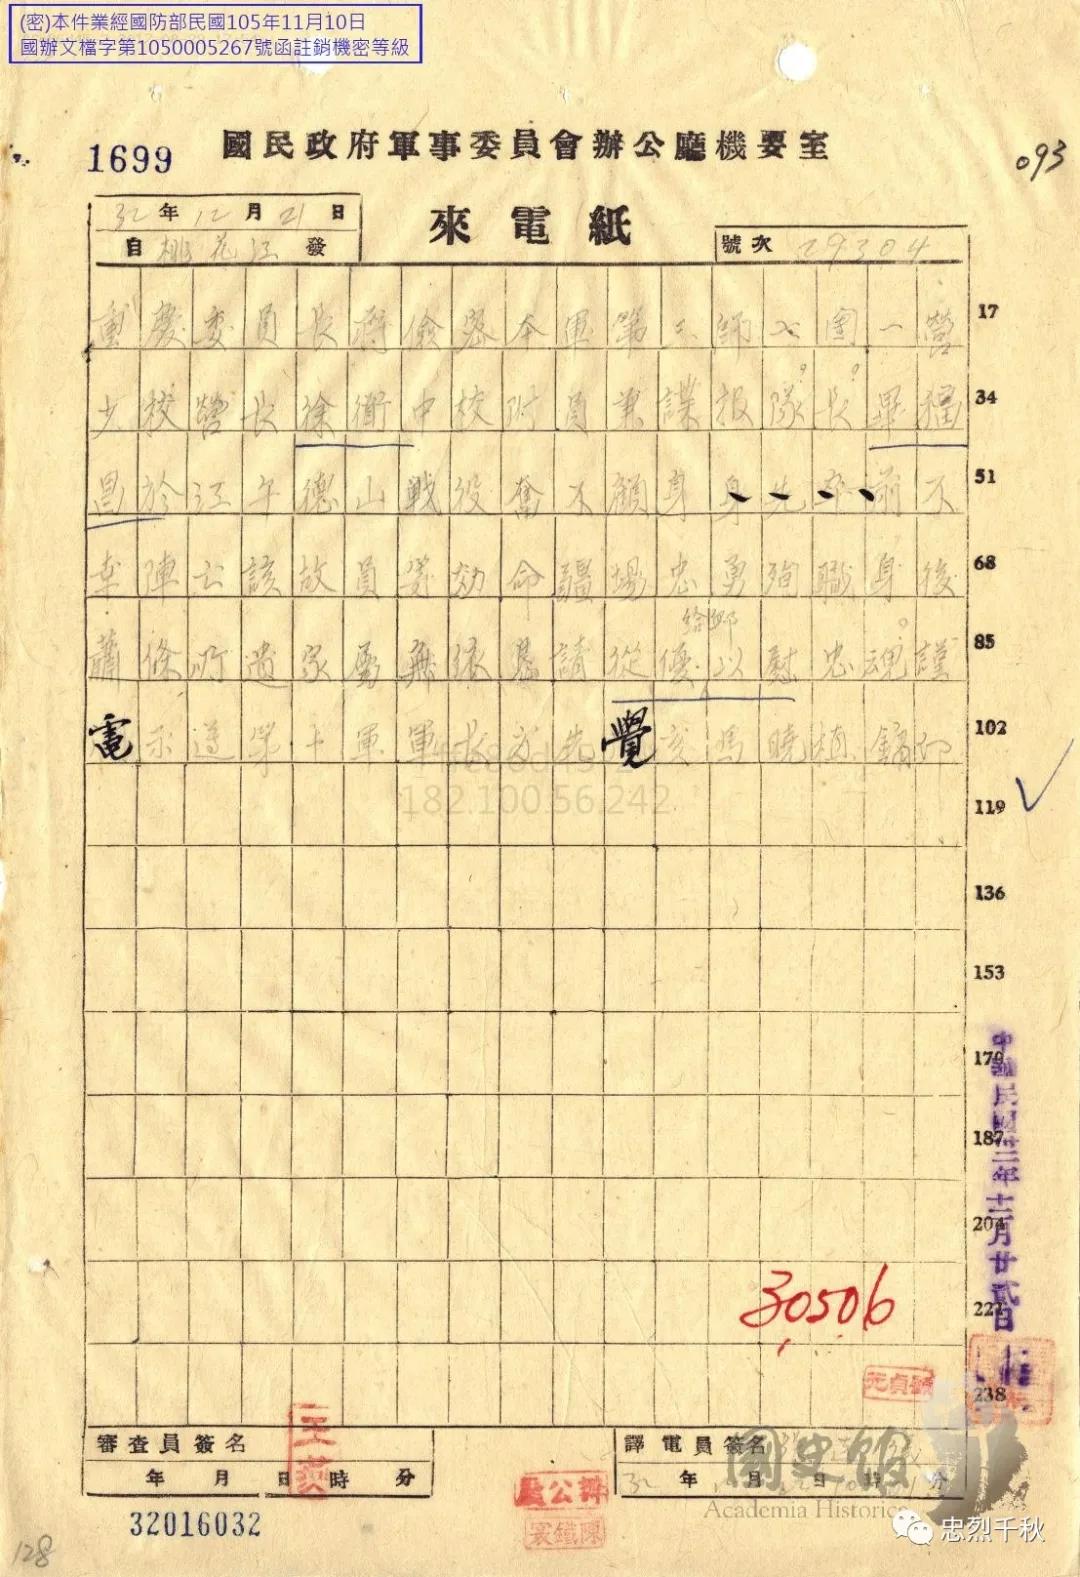 (密)本件業經國防部民國105年11月10日
國辦文檔字第1050005267號函註銷機密等級
1699
國民政府軍事委員會辦公廳機要室
093
32年12月21日
來電紙
自桃花江發
號次 29304
重慶委員長蔣 密本軍第 師 團一營 17
少校營長徐衝中校附員兼諜報隊長畢疆 34
昌於江午德山戰役奮不顧身身先卒前不 51
幸陣亡該故員等効命疆場忠勇殉職身後 68
給卹
蕭條所遺家屬無依懇請從優以慰忠魂謹 85
電示遵第十軍軍長方先覺亥馬曉 印 102
119
136
153
170
187
204
221
238
182.100.56.242
中華民國卅二年十二月廿貳日
30506
審查員簽名
年 月 日 時 分
譯電員簽名
32年 月 日 時 分
辦公廳
陳鐵寰
32016032
國史館
Academia Historica
忠烈千秋
128